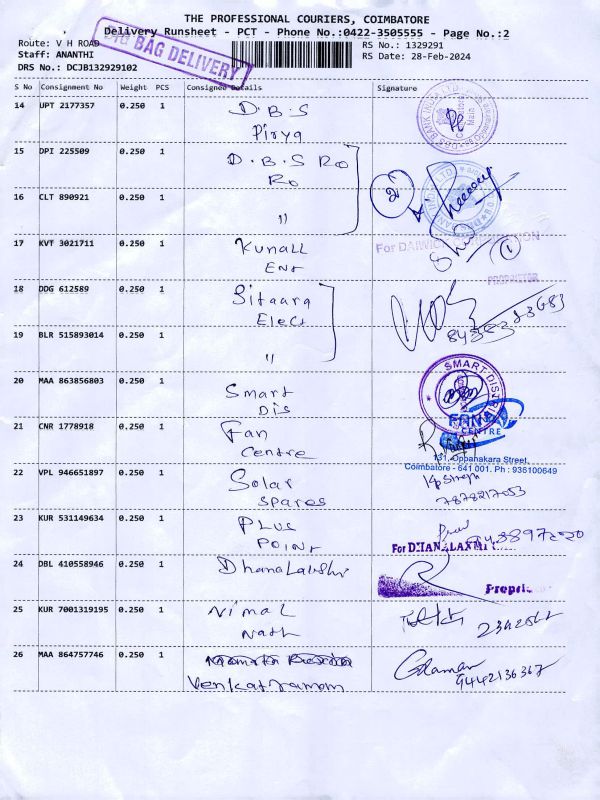 THE PROFESSIONAL COURIERS, COIMBATORE
Delivery Runsheet - PCT - Phone No.:0422-3505555 - Page No.:2
Route: V H ROAD
BIG BAG DELIVERY
RS No.: 1329291
Staff: ANANTHI
RS Date: 28-Feb-2024
DRS No.: DCJB132929102
S No Consignment No Weight PCS Consignee Details Signature
14 UPT 2177357 0.250 1 D.B.S
Pirya
15 DPI 225509 0.250 1 D.B.S Ro
Ro
16 CLT 890921 0.250 1 "
2
17 KVT 3021711 0.250 1 Kunall
Ent
For
1
PROPRIETOR
18 DDG 612589 0.250 1 Sitaara
Elect
19 BLR 515893014 0.250 1 "
20 MAA 863856803 0.250 1 Smart
Dis
SMART DISTRIB
21 CNR 1778918 0.250 1 Fan
Centre
FAN
CENTRE
131, Oppanakara Street,
Coimbatore - 641 001. Ph : 936100649
22 VPL 946651897 0.250 1 Solar
Spares
7878217053
23 KUR 531149634 0.250 1 Plus
Point
For DHANALAXMI
24 DBL 410558946 0.250 1 Dhanalakshi
25 KUR 7001319195 0.250 1 Nimal
Nath
26 MAA 864757746 0.250 1
Venkatramam
9442136367